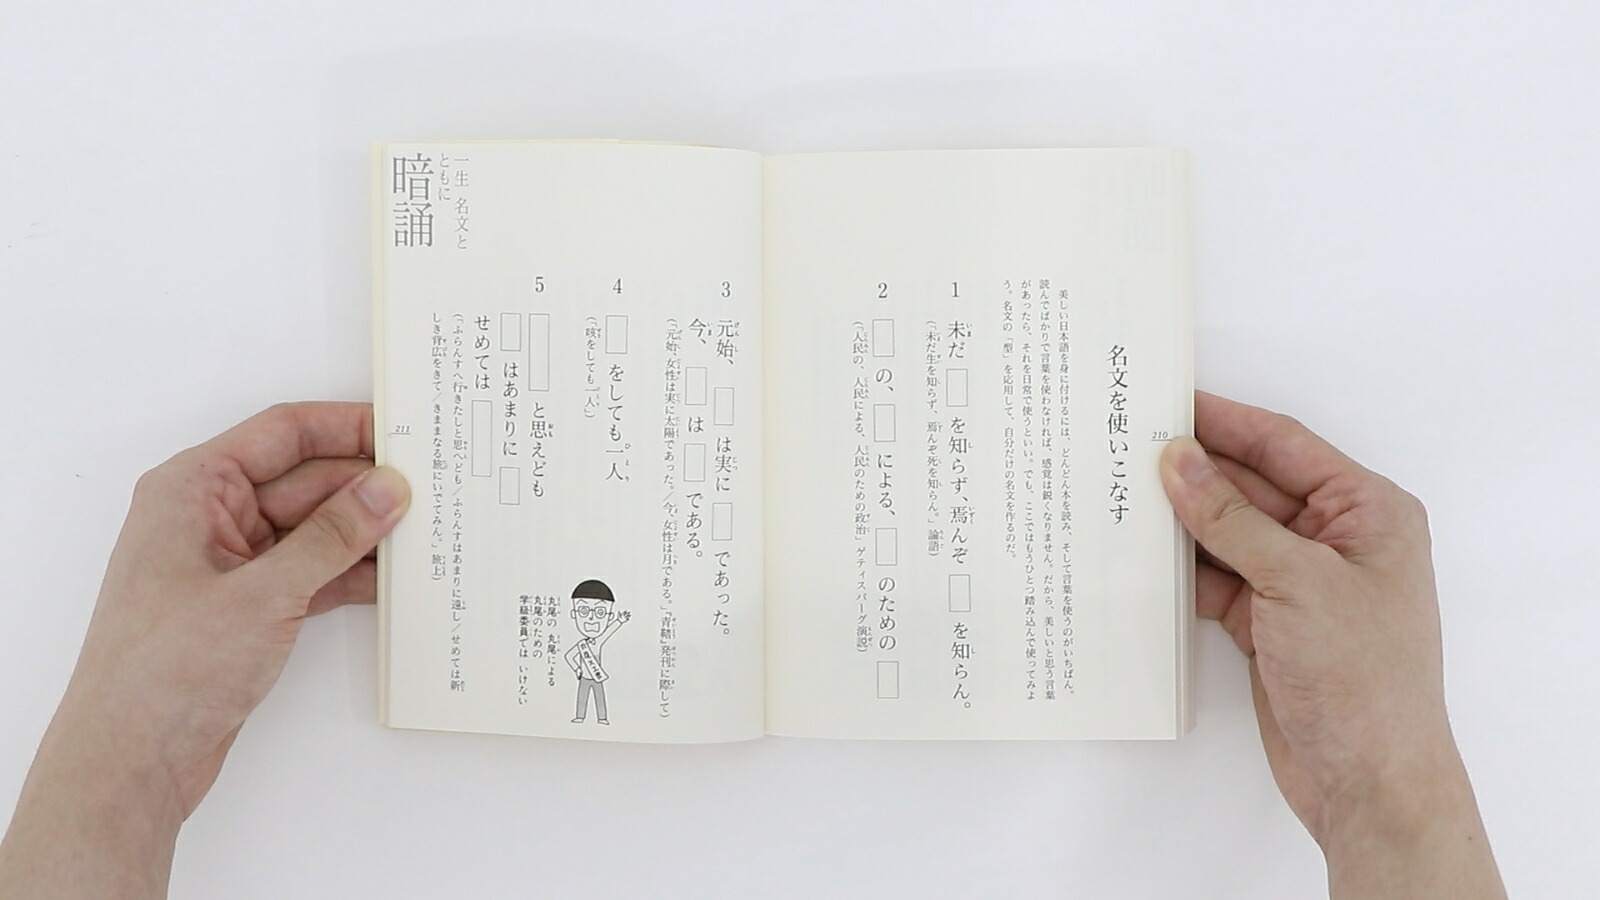 名文を使いこなす
美しい日本語を身に付けるには、どんどん本を読み、そして言葉を使うのがいちばん。
読んでばかりで言葉を使わなければ、感覚は鋭くなりません。だから、美しいと思う言葉
があったら、それを日常で使うといい。でも、ここではもうひとつ踏み込んで使ってみよ
う。名文の「型」を応用して、自分だけの名文を作るのだ。
1 未だ□を知らず、焉んぞ□を知らん。
(「未だ生を知らず、焉んぞ死を知らん。」論語)
2 □の、□による、□のための□
(「人民の、人民による、人民のための政治」ゲティスバーグ演説)
210
3 元始、□は実に□であった。
今、□は□である。
(「元始、女性は実に太陽であった。/今、女性は月である。」『青鞜』発刊に際して)
4 □をしても一人
(「咳をしても一人」)
5 □と思えども
□はあまりに□
せめては□
(「ふらんすへ行きたしと思へども/ふらんすはあまりに遠し/せめては新
しき背広をきて/きままなる旅にいでてみん。」旅上)
丸尾の 丸尾による
丸尾のための
学級委員では いけない
一生 名文と
ともに
暗誦
211